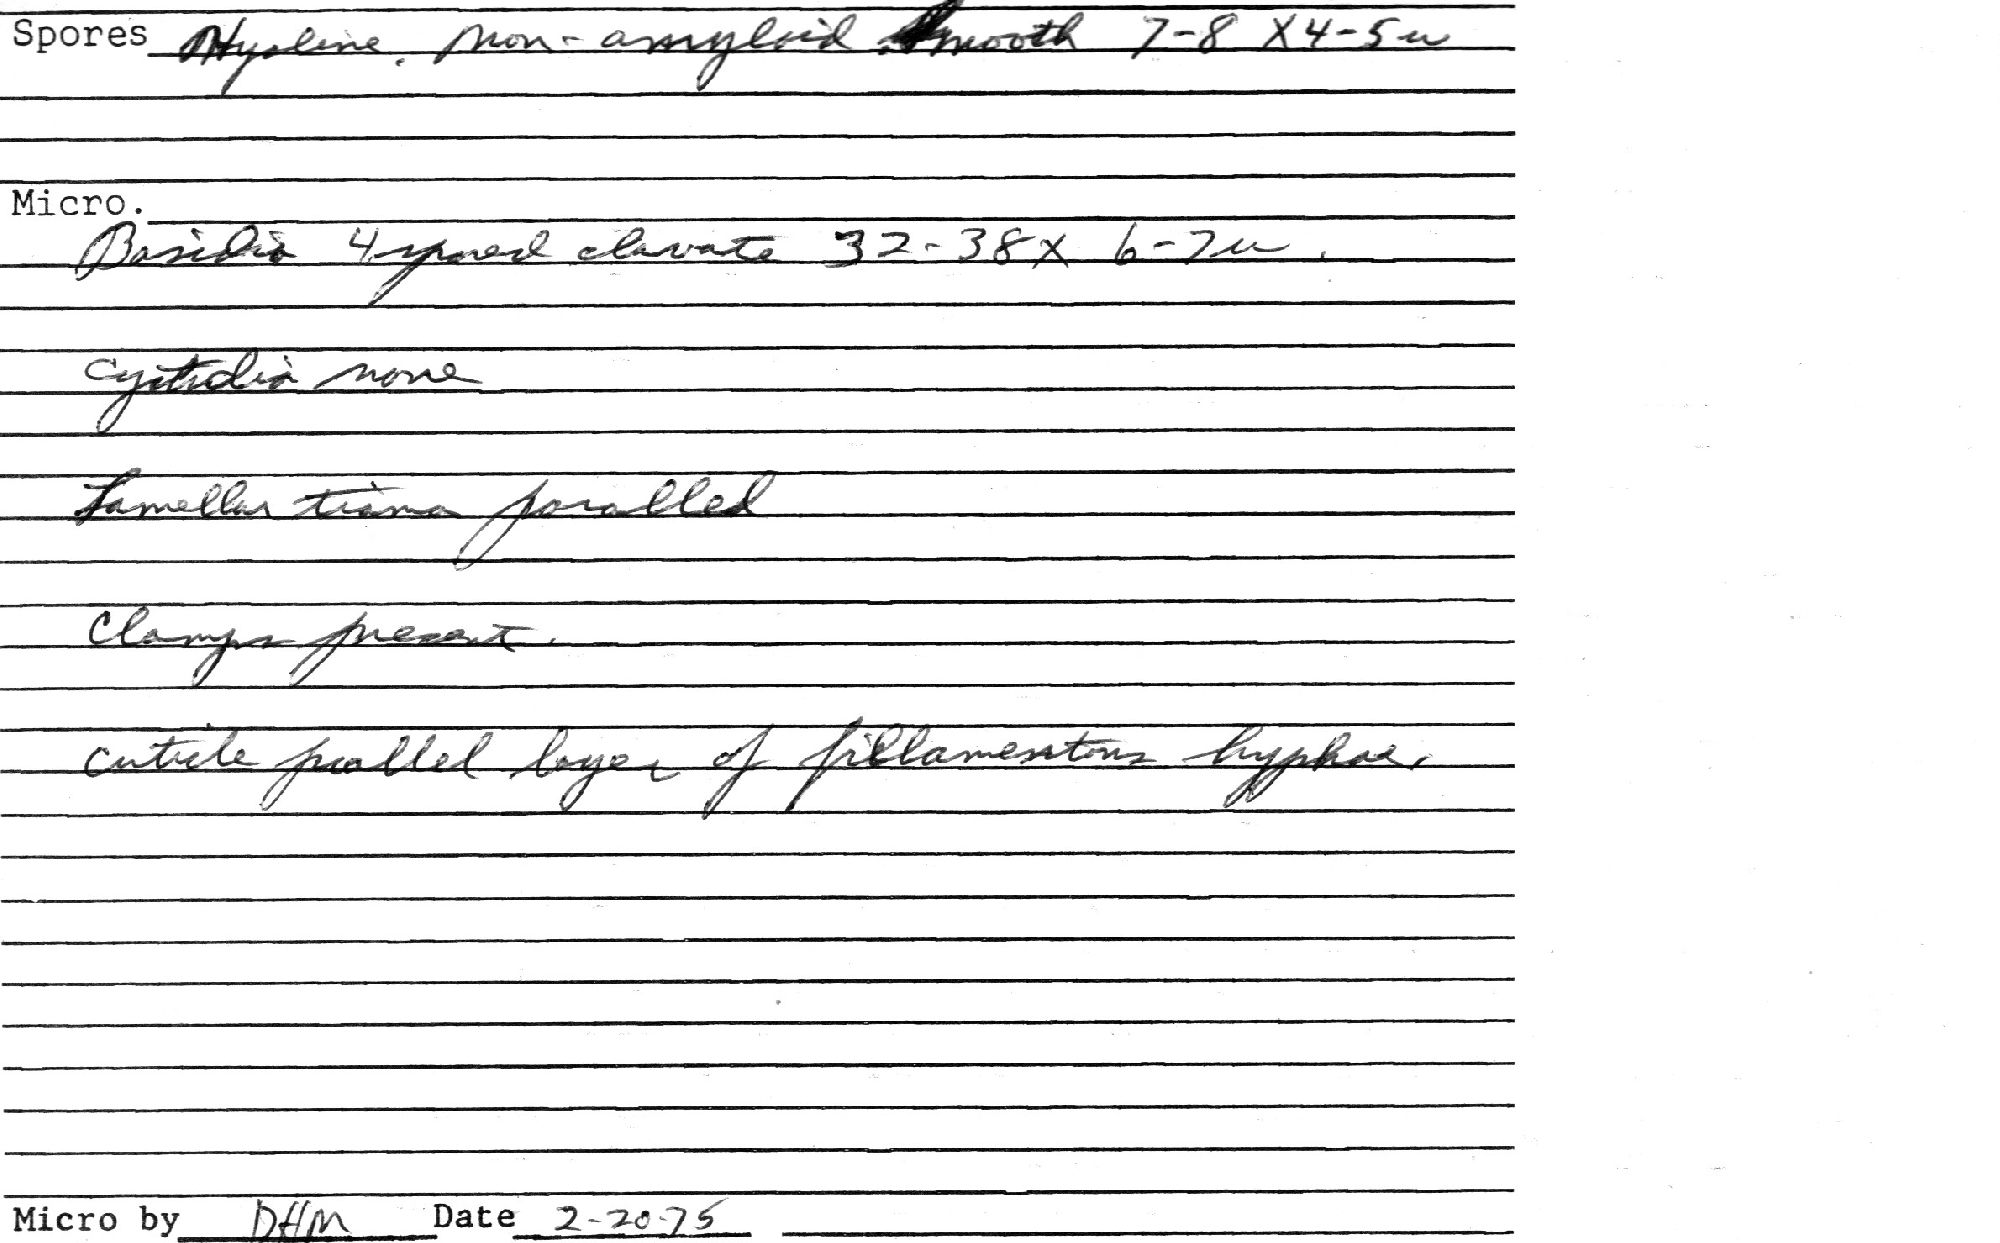 Spores Hyaline, non-amyloid smooth 7-8 X 4-5u
Micro.
Basidia 4 spored clavate 32-38 x 6-7u.
Cystidia none
Lamellar trama paralled
Clamps present.
cuticle prallel layer of fillamentous hyphae.
Micro by DHM Date 2-20-75